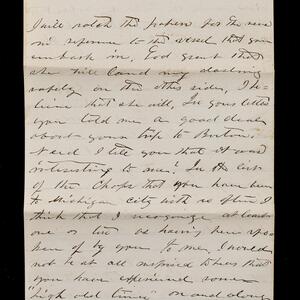 I will watch the papers for the news
in reference to the vessel that you
embark in. God grant that
she will land my darling
safely on the other side, I be-
lieve that she will, In your letter
you told me a good deal
about your trip to Boston.
Need I tell you that it was
interesting to me. In the list
of the Chaps that you have been
to Michigan city with so often I
think that I recognize at least
one or two as having been spo-
ken of by you to me, I would
not be at all surprised to hear that
you have experienced some
"high old times" on and along